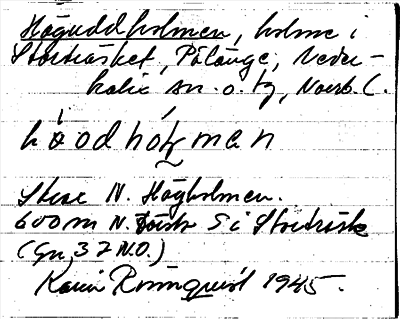 Höguddholmen, holme i
Storträsket, Pålänge, Neder-
kalix sn. o. tg, Norrb. l.
hö̀odhóɫmen
N. Högholmen.
600 m N. S i Storträsk
(Gn, 37 N.O.)
Karin Rönnquist 1945.